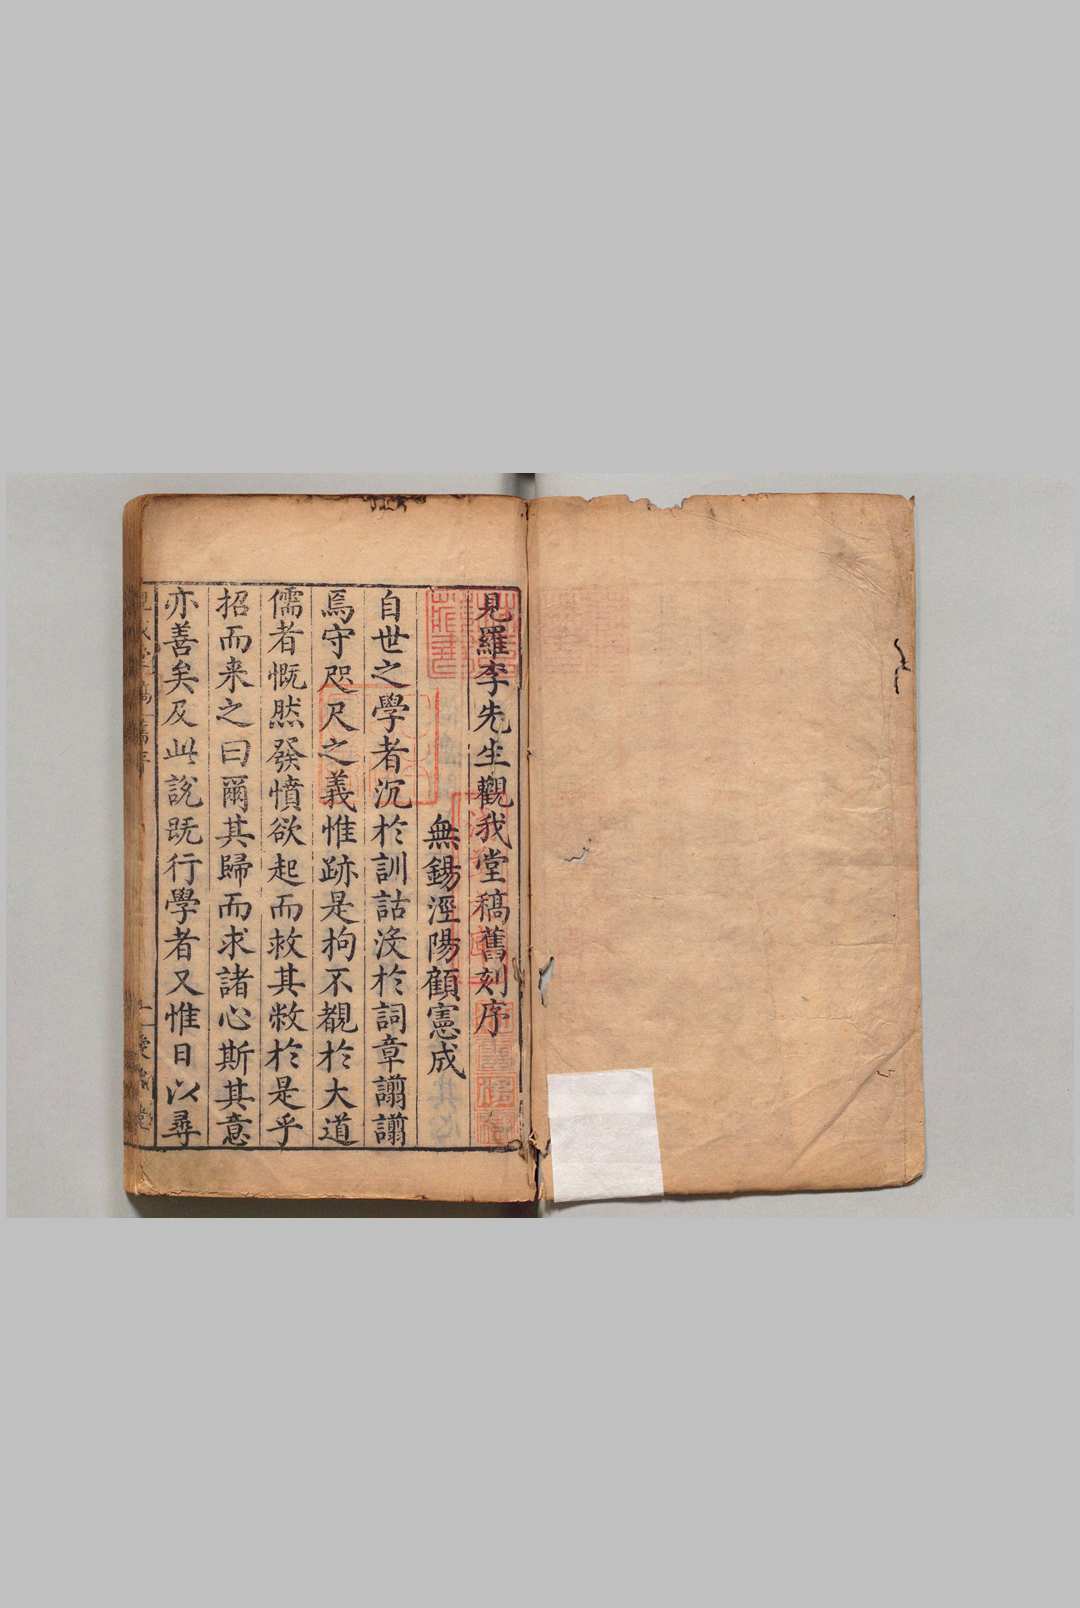 見羅李先生觀我堂稿舊刻序
無錫涇陽顧憲成
自世之學者沉於訓詁淩於詞章謭謭
焉守咫尺之義惟跡是拘不覩於大道
儒者慨然發憤欲起而救其敝於是乎
招而来之曰爾其歸而求諸心斯其意
亦善矣及此說既行學者又惟日以尋